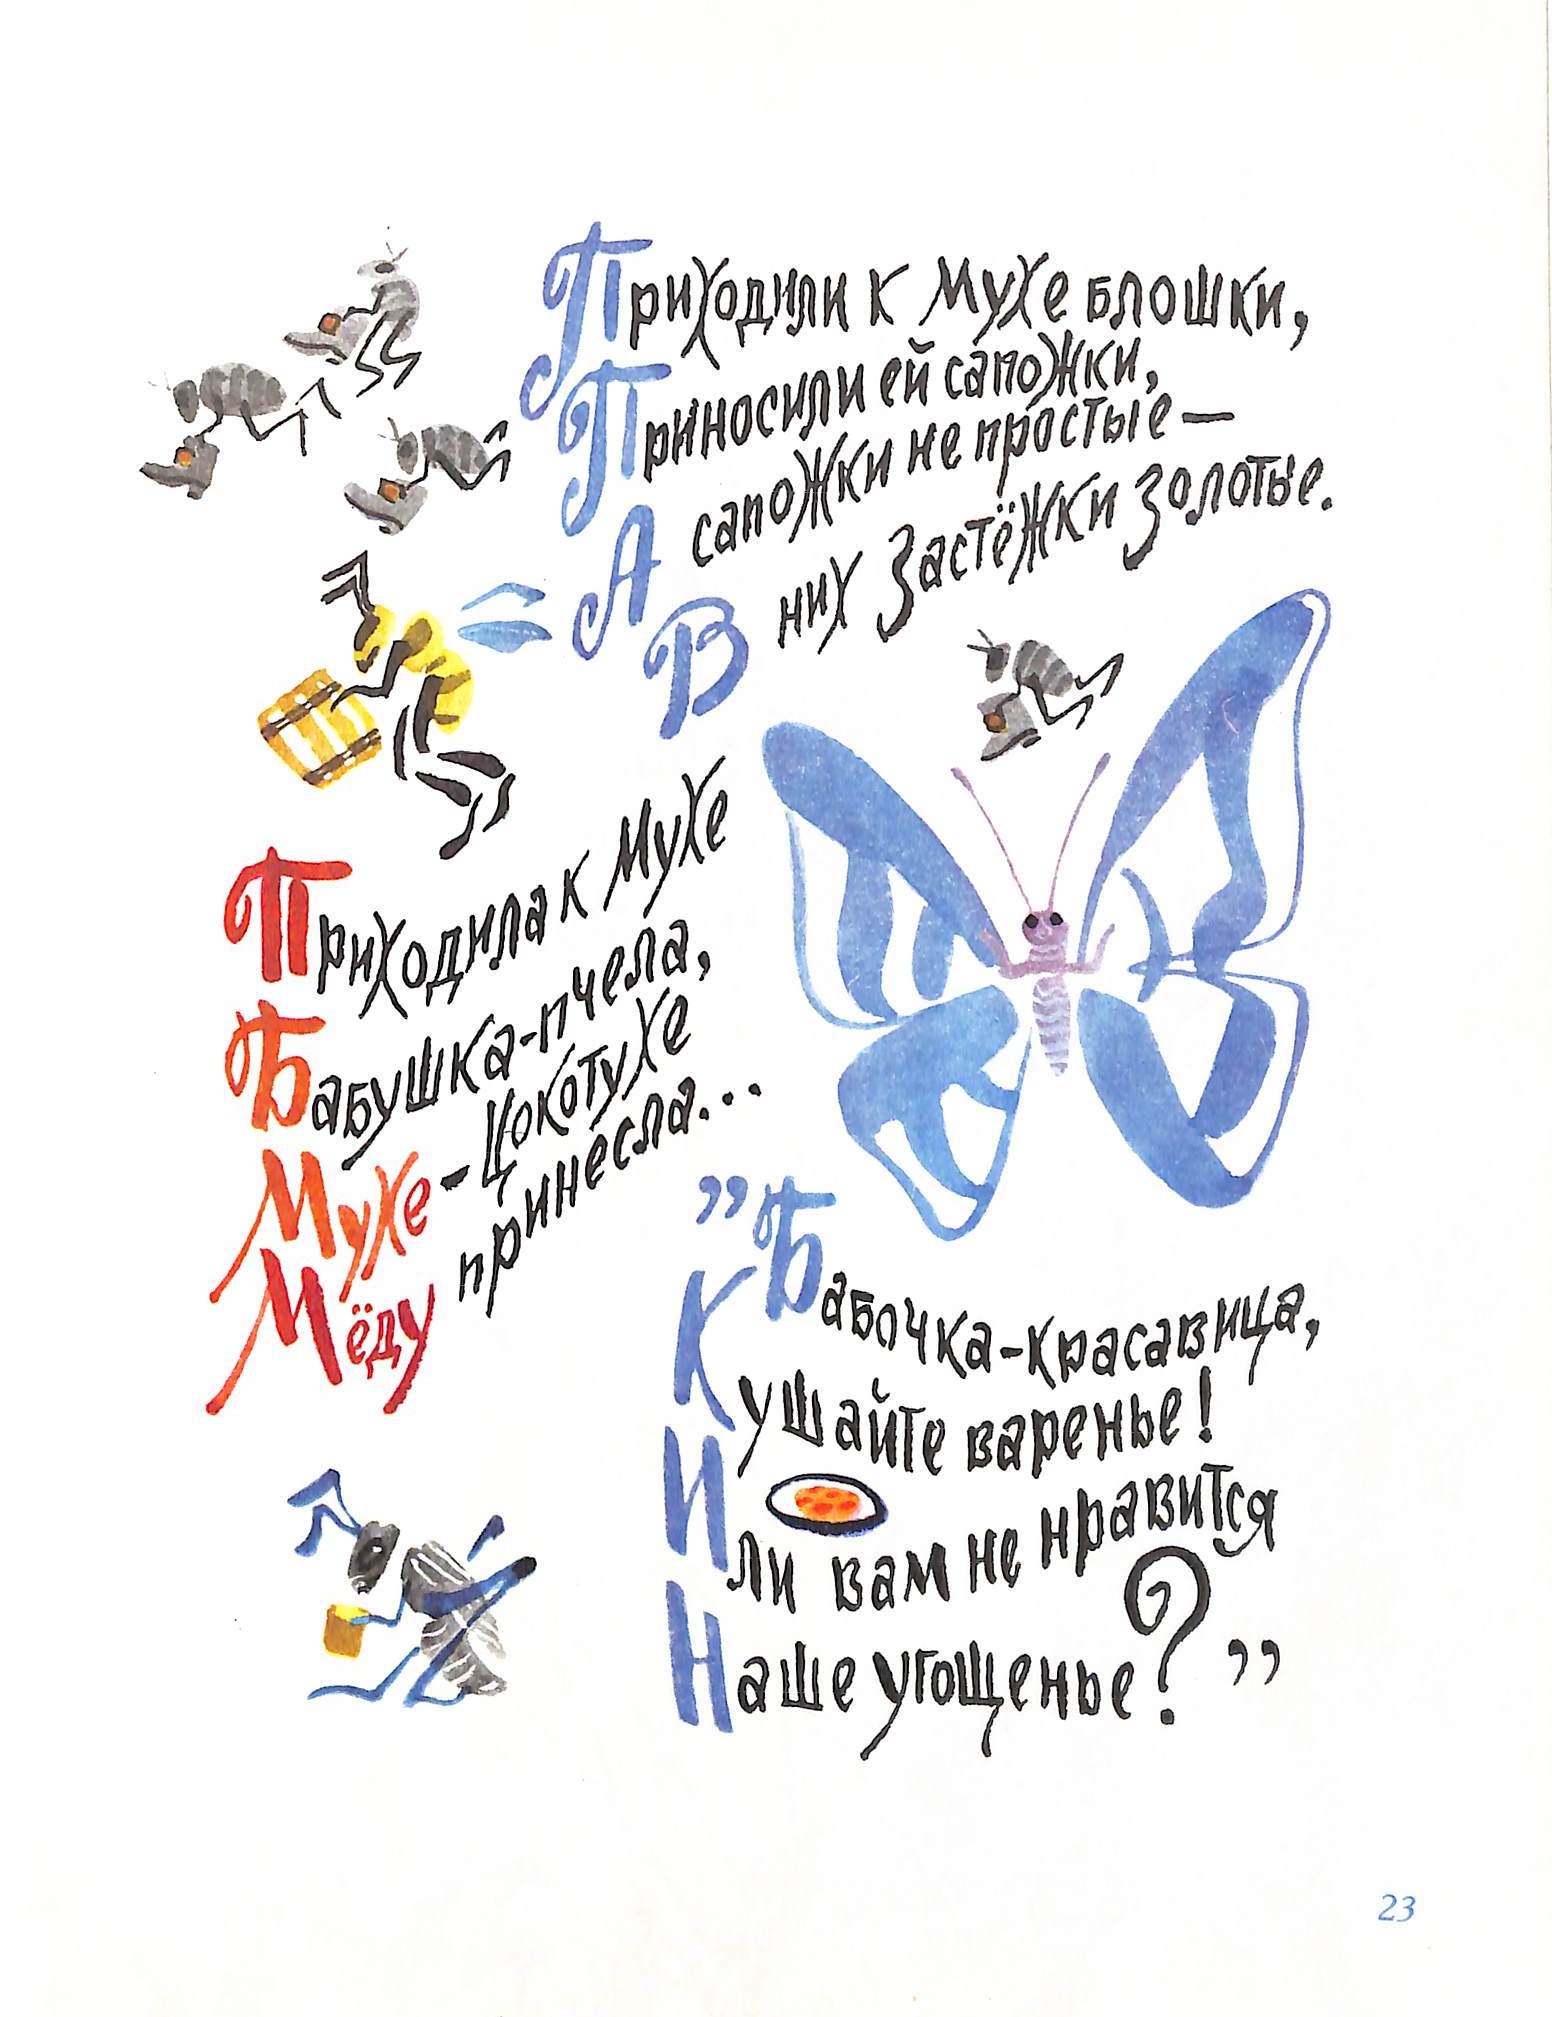 Приходили к Мухе блошки,
Приносили ей сапожки,
А сапожки не простые —
В них застёжки золотые.
Приходила к Мухе
Бабушка-пчела,
Мухе-Цокотухе
Мёду принесла...
”Бабочка-красавица,
Кушайте варенье!
Или вам не нравится
Наше угощенье?”
23